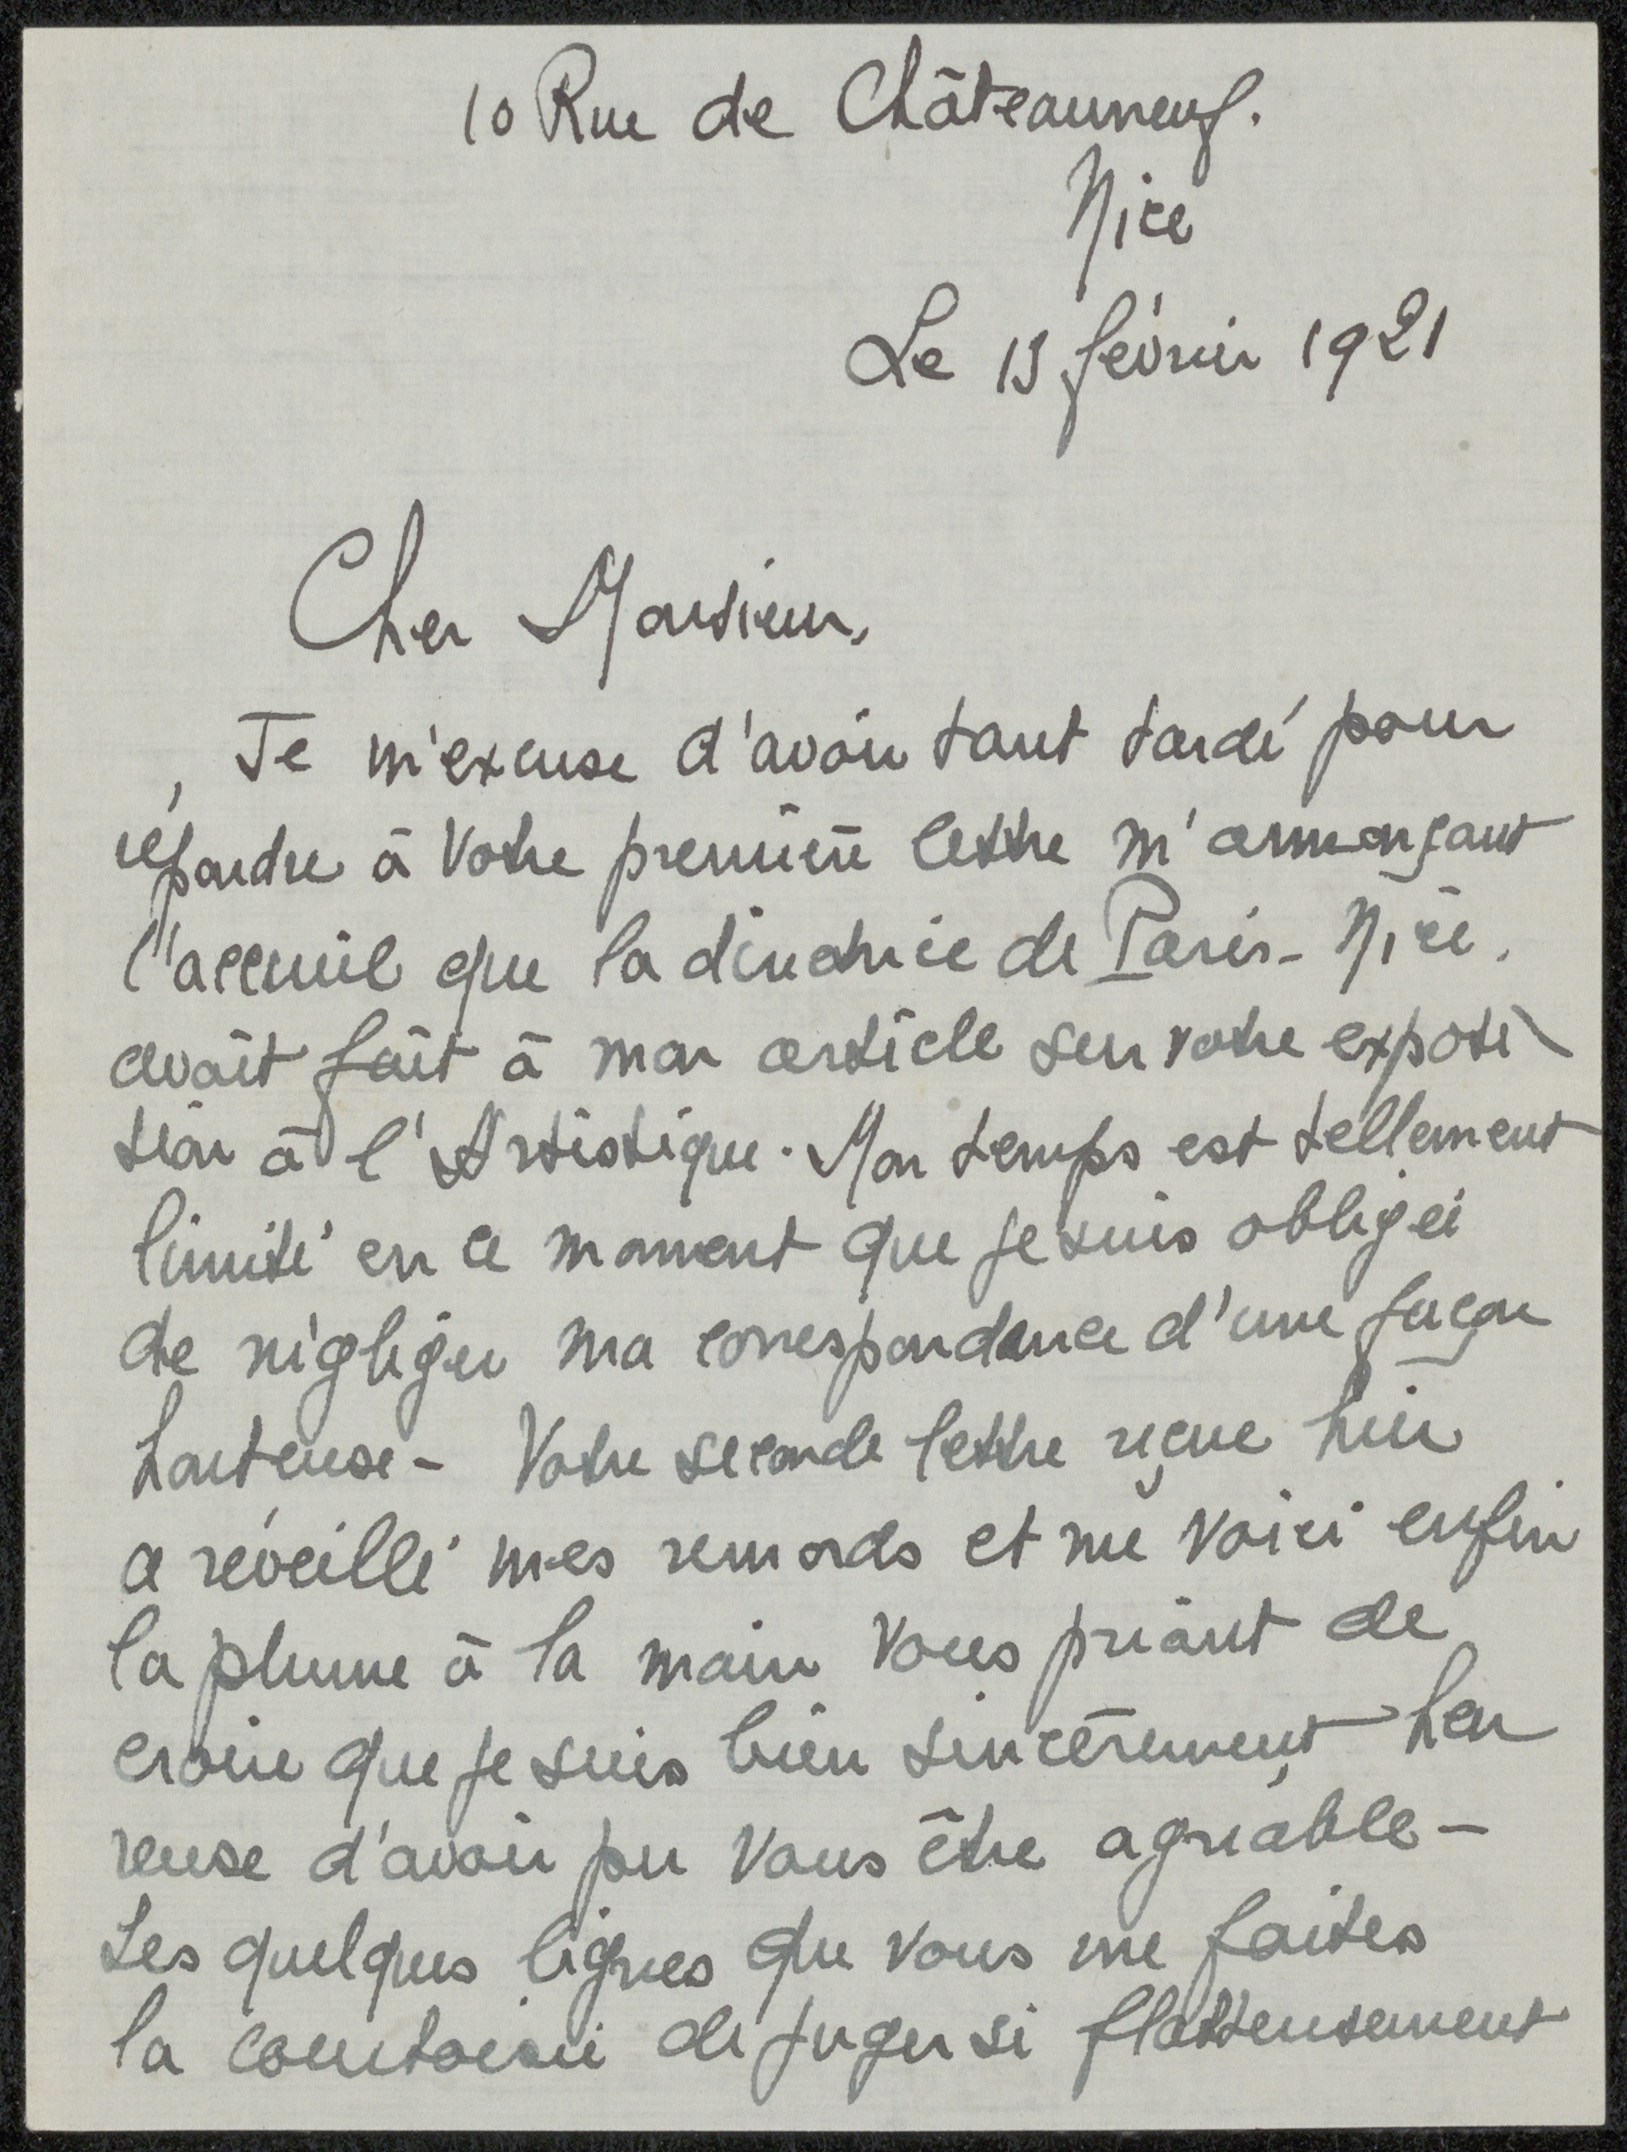 10 Rue de Châteauneuf.
Nice
Le 15 février 1921
Cher Monsieur,
Je m'excuse d'avoir tant tardé pour
répondre à votre première lettre m'annonçant
l'accueil que la directrice de Paris-Nice.
avait fait à mon article sur votre exposi
tion à l'Artistique. Mon temps est tellement
limité en ce moment que je suis obligée
de négliger ma correspondance d'une façon
honteuse - Votre seconde lettre reçue hier
a réveillé mes remords et me voici enfin
la plume à la main vous priant de
croire que je suis bien sincèrement heu
reuse d'avoir pu vous être agréable -
Les quelques lignes que vous me faites
la courtoisie de juger si flatteusement